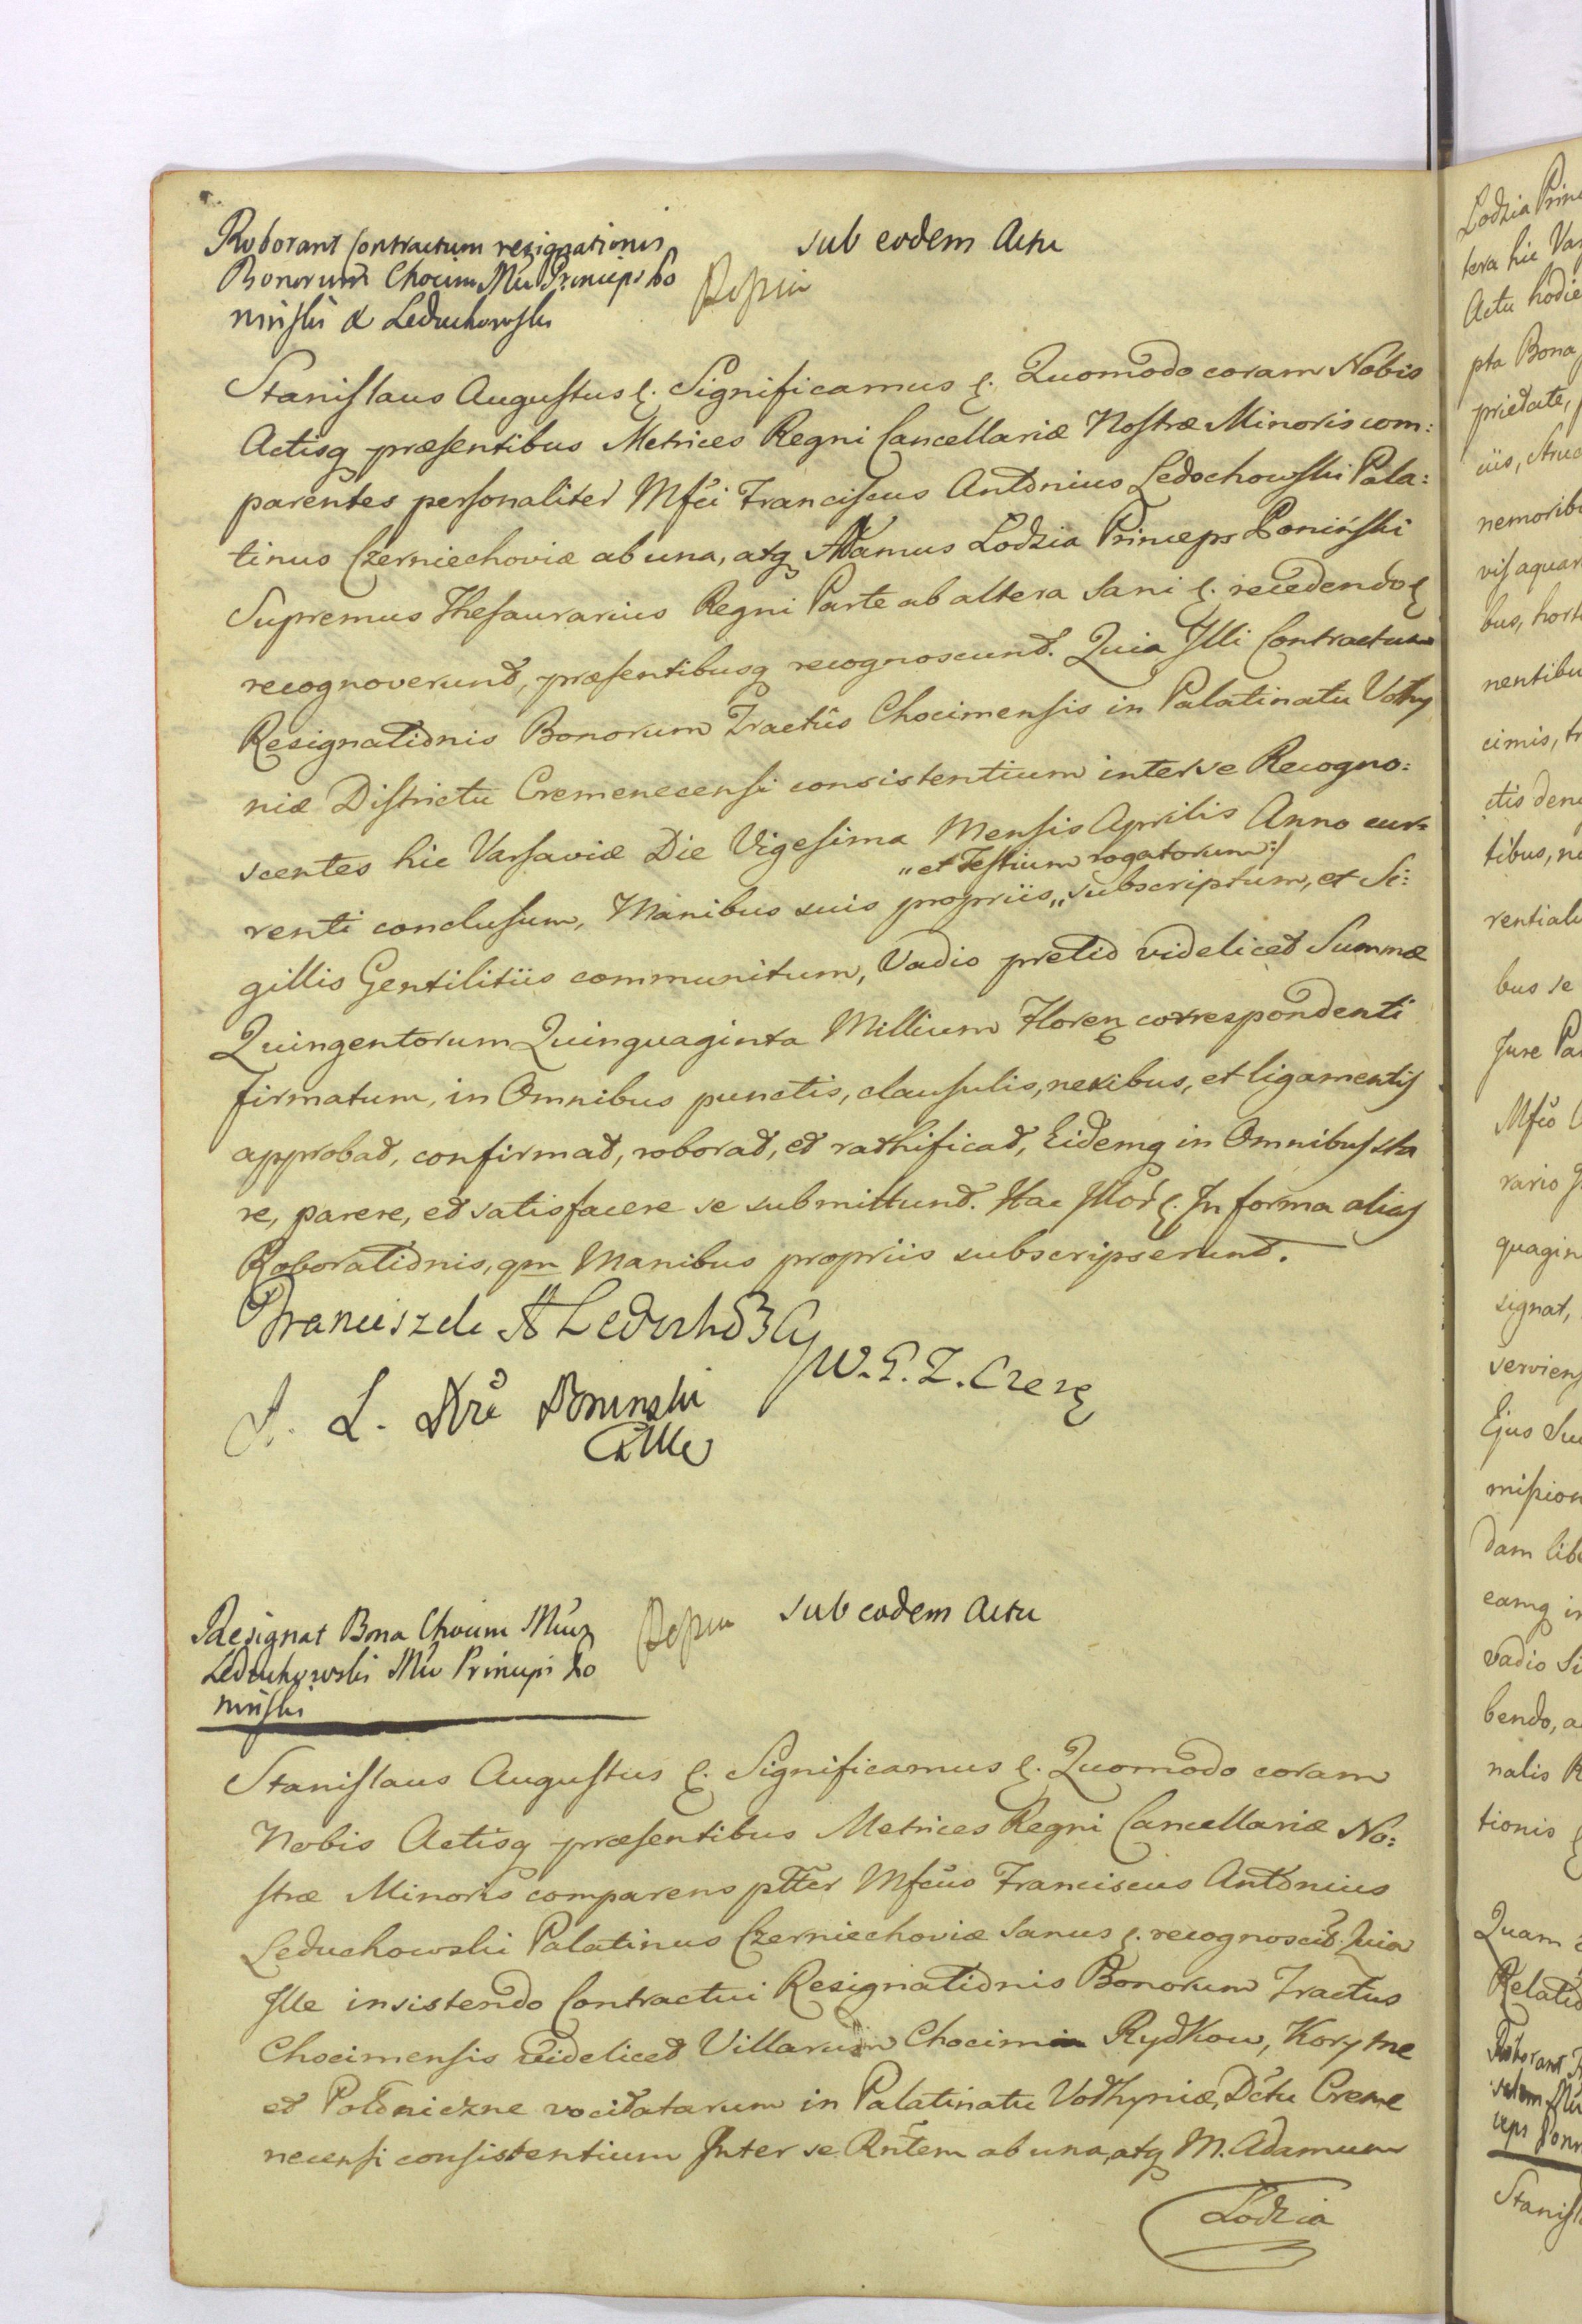 Roborant Contractum resignationis
Bonorum Chocim Mci Princeps Po
niński & Leduchowski
sub eodem Actu
Stanislaus Augustus &. Significamus &. Quomodo coram Nobis
Actisq præsentibus Metrices Regni Cancellariæ Nostræ Minoris com:
parentes personaliter Mfci Franciscus Antonius Ledochowski Pala:
tinus Czerniechoviæ ab una, atq Adamus Lodzia Princeps Poniński
Supremus Thesaurarius Regni Parte ab altera Sani &. recedendo &
recognoverunt, præsentibusq recognoscunt. Quia Illi Contractum
Resignationis Bonorum Tractûs Chocimensis in Palatinatu Volhy
niæ Districtu Cremenecensi consistentium inter se Recogno:
scentes hic Varsaviæ Die Vigesima Mensis Aprilis Anno cur:
„et Testium rogatorum:/
renti conclusum, Manibus suis propriis „ subscriptum, et Si:
gillis Gentilitiis communitum, Vadio pretio videlicet Summæ
Quingentorum Quinquaginta Millium Floren correspondenti
firmatum, in Omnibus punctis, clausulis, nexibus, et ligamentis
approbat, confirmat, roborat, et rathificat, Eidemq in Omnibus sta
re, parere, et satisfacere se submittunt. Hac Illor &. In forma alias
Roborationis, qm Manibus propriis subscripserunt.
Franciszek A Leduchowski
W. G. Z. Czer
A. L. Xże Poninski
Resignat Bona Chocim Mcus
Leduchowski Mco Principi Po
niński
sub eodem Actu
Stanislaus Augustus &. Significamus &. Quomodo coram
Nobis Actisq præsentibus Metrices Regni Cancellariæ No:
stræ Minoris comparens pltter Mfcus Franciscus Antonius
Leduchowski Palatinus Czerniechoviæ Sanus &. recognoscit. Quia
Ille insistendo Contractui Resignationis Bonorum Tractus
Chocimensis videlicet Villarum Chocim Rydkow, Korytne
et Połoniczne vocitatarum in Palatinatu Volhyniæ, Dctu Creme
necensi consistentium Inter se Rntem ab una, atq M. Adamum
Lodzia
Lodzia Prin
tera hic Va
Actu hodie
pta Bona
prietate,
iis, struc
nemorib
vis aquar
bus, hort
nentibu
cimis, tr
ctis den
tibus, ne
rentiali
bus se
Jure Pa
Mfco
rario
quagin
signat,
serviens
Ejus Su
mission
dam lib
eamq i
Vadio Si
bendo, a
nalis R
tionis
Quam
Relatio
Roborant
ceps Poni
Stanisl